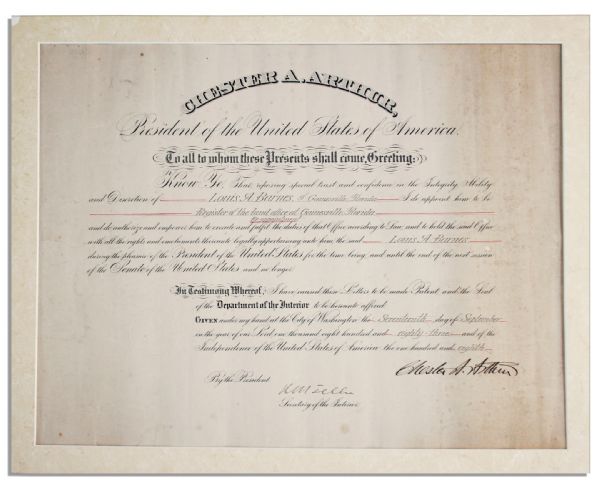 CHESTER A. ARTHUR,
President of the United States of America.
To all to whom these Presents shall come, Greeting:
Know Ye, That reposing special trust and confidence in the Integrity, Ability
and Discretion of Louis A. Barnes, of Gainesville Florida I do appoint him to be
Register of the land office at Gainesville Florida
and do authorize and empower him to execute and fulfil the duties of that Office according to Law; and to hold the said Office
with all the rights and emoluments thereunto legally appertaining unto him the said Louis A. Barnes
during the pleasure of the President of the United States for the time being, and until the end of the next session
of the Senate of the United States and no longer.
In Testimony Whereof, I have caused these Letters to be made Patent, and the Seal
of the Department of the Interior to be hereunto affixed.
GIVEN under my hand at the City of Washington the Seventeenth day of September
in the year of our Lord one thousand eight hundred and eighty-three and of the
Independence of the United States of America the one hundred and eighth.
Chester A. Arthur
By the President
H M Teller
Secretary of the Interior